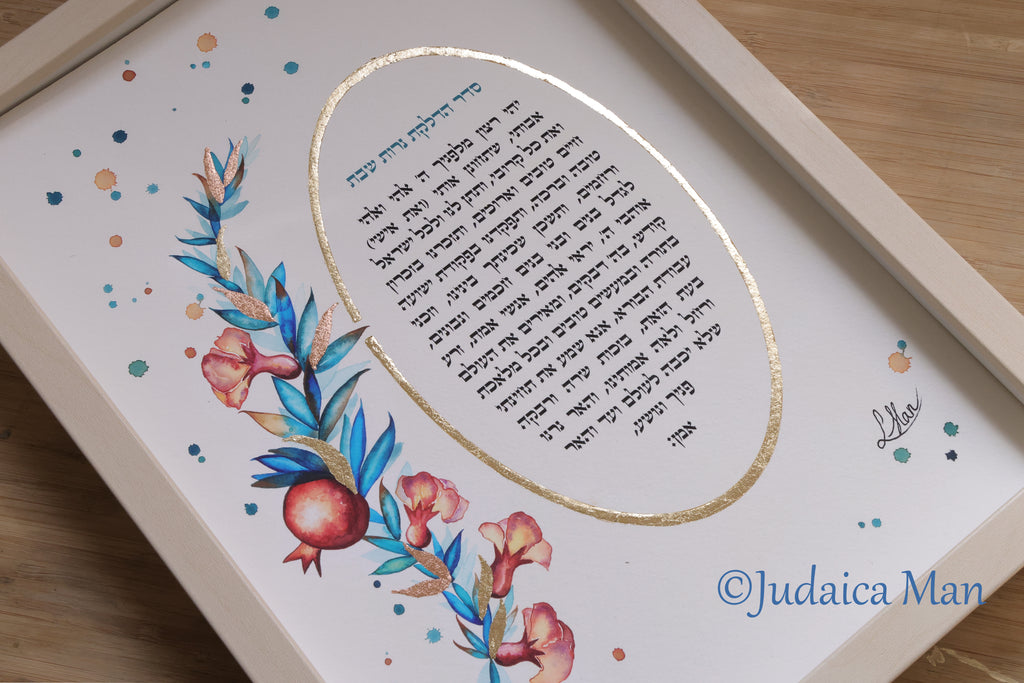 סדר הדלקת נרות שבת
יהי רצון מלפניך ה' אלהי ואלהי
אבותי, שתחונן אותי (ואת אישי)
ואת כל קרובי, ותתן לנו ולכל ישראל
חיים טובים וארוכים, ותזכרנו בזכרון
טובה וברכה, ותפקדנו בפקודת ישועה
ורחמים, ותשכן שכינתך בינינו, וזכני
לגדל בנים ובני בנים חכמים ונבונים
אוהבי ה', יראי אלהים, אנשי אמת, זרע
קודש, בה' דבקים, ומאירים את העולם
בתורה ובמעשים טובים ובכל מלאכת
עבודת הבורא אנא שמע את תחינתי
בעת הזאת, בזכות שרה ורבקה
ורחל ולאה אמותינו, והאר נרנו
שלא יכבה לעולם ועד והאר
פניך ונושע,
אמן:
L Man
©Judaica Man